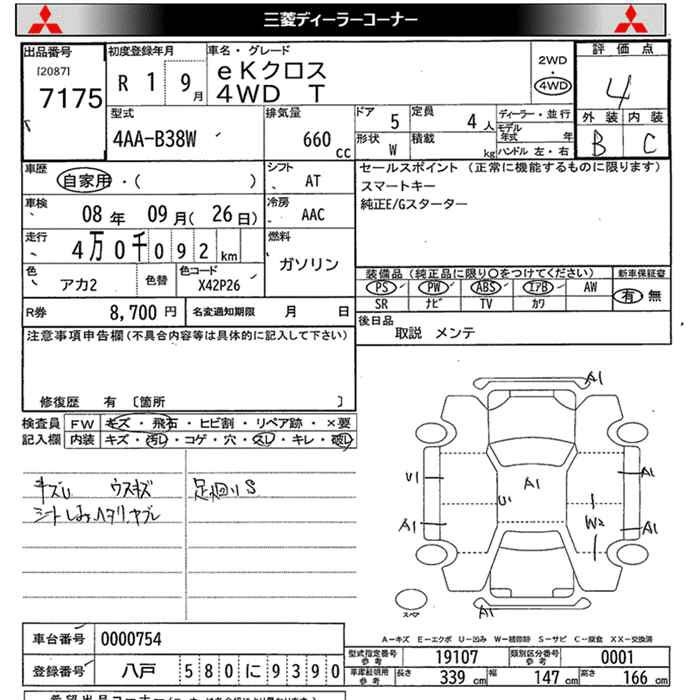 三菱ディーラーコーナー
出品番号 初度登録年月 車名・グレード 評価点
[2087] 7175 R 1 9月 eKクロス 4WD T 2WD・4WD 4
外装 内装
B C
型式 排気量 ドア 5 定員 4人 ディーラー・並行
4AA-B38W 660cc 形状 W 積載 kg モデル年式 年
ハンドル 左・右
車歴 シフト セールスポイント (正常に機能するものに限ります)
自家用・( ) AT スマートキー
車検 冷房 純正E/Gスターター
08年 09月(26日) AAC
走行 燃料
4万0千092km ガソリン
色 色替 色コード 装備品(純正品に限り○をつけてください) 新車保証書
アカ2 X42P26 PS PW ABS エアB AW 有・無
SR ナビ TV カワ
R券 8,700円 名変通知期限 月 日 後日品
取説 メンテ
注意事項申告欄(不具合内容等は具体的に記入して下さい)
修復歴 有〔箇所 〕
検査員 FW キズ・飛石・ヒビ割・リペア跡・×要
記入欄 内装 キズ・汚レ・コゲ・穴・スレ・キレ・破レ
キズU ウスキズ 足廻りS
シートしみ、ヘタリ、ヤブレ
A1
U1 A1 A1
U1 W2
A1 A1
スペア A1
A-キズ E-エクボ U-凹み W-補修跡 S-サビ C-腐食 XX-交換済
車台番号 0000754 型式指定番号参考 19107 類別区分番号参考 0001
登録番号 八戸 580に9390 車庫証明用参考 長さ 339cm 幅 147cm 高さ 166cm